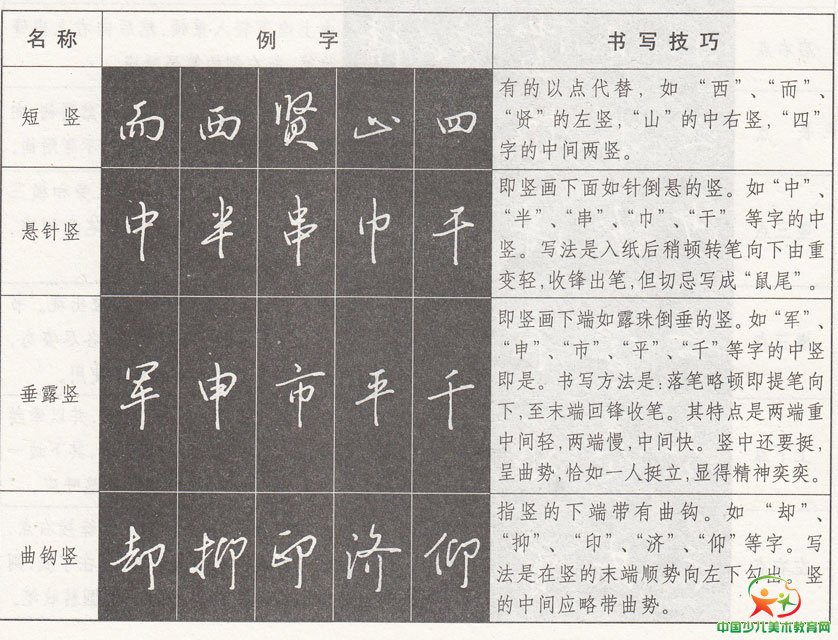 名称 例字 书写技巧
短竖
而 西 贤 山 四
有的以点代替，如“西”、“而”、
“贤”的左竖，“山”的中右竖，“四”
字的中间两竖。
悬针竖
中 半 串 巾 干
即竖画下面如针倒悬的竖。如“中”、
“半”、“串”、“巾”、“干”等字的中
竖。写法是入纸后稍顿转笔向下由重
变轻，收锋出笔，但切忌写成“鼠尾”。
垂露竖
军 申 市 平 千
即竖画下端如露珠倒垂的竖。如“军”、
“申”、“市”、“平”、“千”等字的中竖
即是。书写方法是：落笔略顿即提笔向
下，至末端回锋收笔。其特点是两端重
中间轻，两端慢，中间快。竖中还要挺，
呈曲势，恰如一人挺立，显得精神奕奕。
曲钩竖
却 抑 印 济 仰
指竖的下端带有曲钩。如“却”、
“抑”、“印”、“济”、“仰”等字。写
法是在竖的末端顺势向左下勾出。竖
的中间应略带曲势。
中国少儿美术教育网